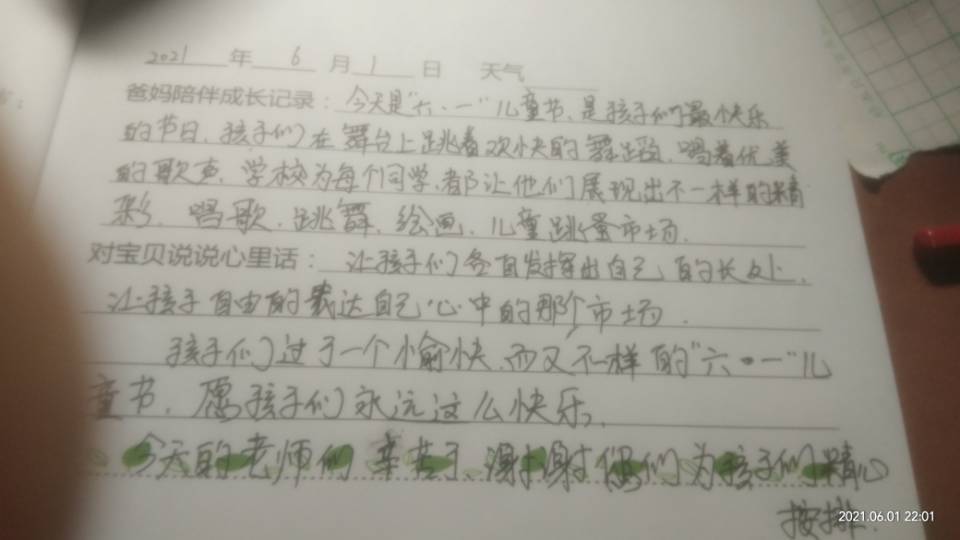 2021年6月1日 天气
爸妈陪伴成长记录：今天是"六·一"儿童节，是孩子们最快乐
的节日，孩子们在舞台上跳着欢快的舞蹈，唱着优美
的歌声，学校为每个同学，都让他们展现出不一样的精
彩，唱歌，跳舞，绘画，儿童跳蚤市场，
对宝贝说说心里话：让孩子们各自发挥出自己的长处，
让孩子自由的表达自己心中的那个市场，
孩子们过了一个愉快，而又不一样的"六·一"儿
童节，愿孩子们永远这么快乐，
今天的老师们辛苦了，谢谢你们为孩子们精心
按排，
2021.06.01 22:01